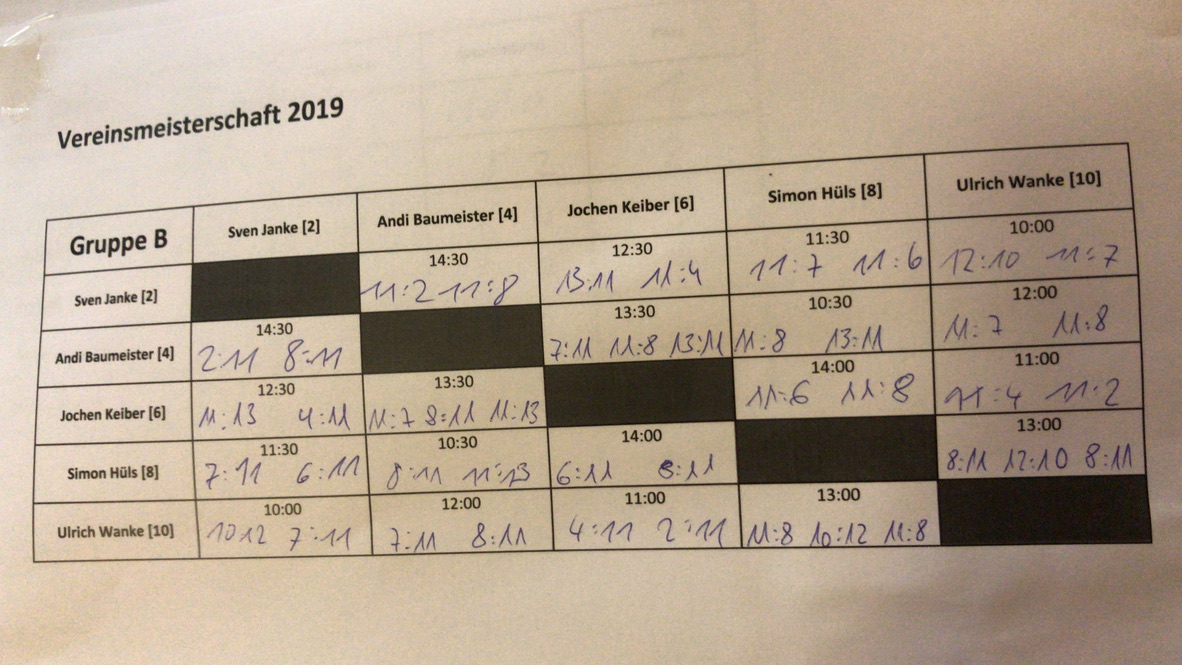 Vereinsmeisterschaft 2019
Gruppe B Sven Janke [2] Andi Baumeister [4] Jochen Keiber [6] Simon Hüls [8] Ulrich Wanke [10]
14:30 12:30 11:30 10:00
Sven Janke [2] 11:2 11:8 13:11 11:4 11:7 11:6 12:10 11:7
14:30 13:30 10:30 12:00
Andi Baumeister [4] 2:11 8:11 7:11 11:8 13:11 11:8 13:11 11:7 11:8
12:30 13:30 14:00 11:00
Jochen Keiber [6] 11:13 4:11 11:7 8:11 11:13 11:6 11:8 11:4 11:2
11:30 10:30 14:00 13:00
Simon Hüls [8] 7:11 6:11 8:11 11:13 6:11 8:11 8:11 12:10 8:11
10:00 12:00 11:00 13:00
Ulrich Wanke [10] 10:12 7:11 7:11 8:11 4:11 2:11 11:8 10:12 11:8